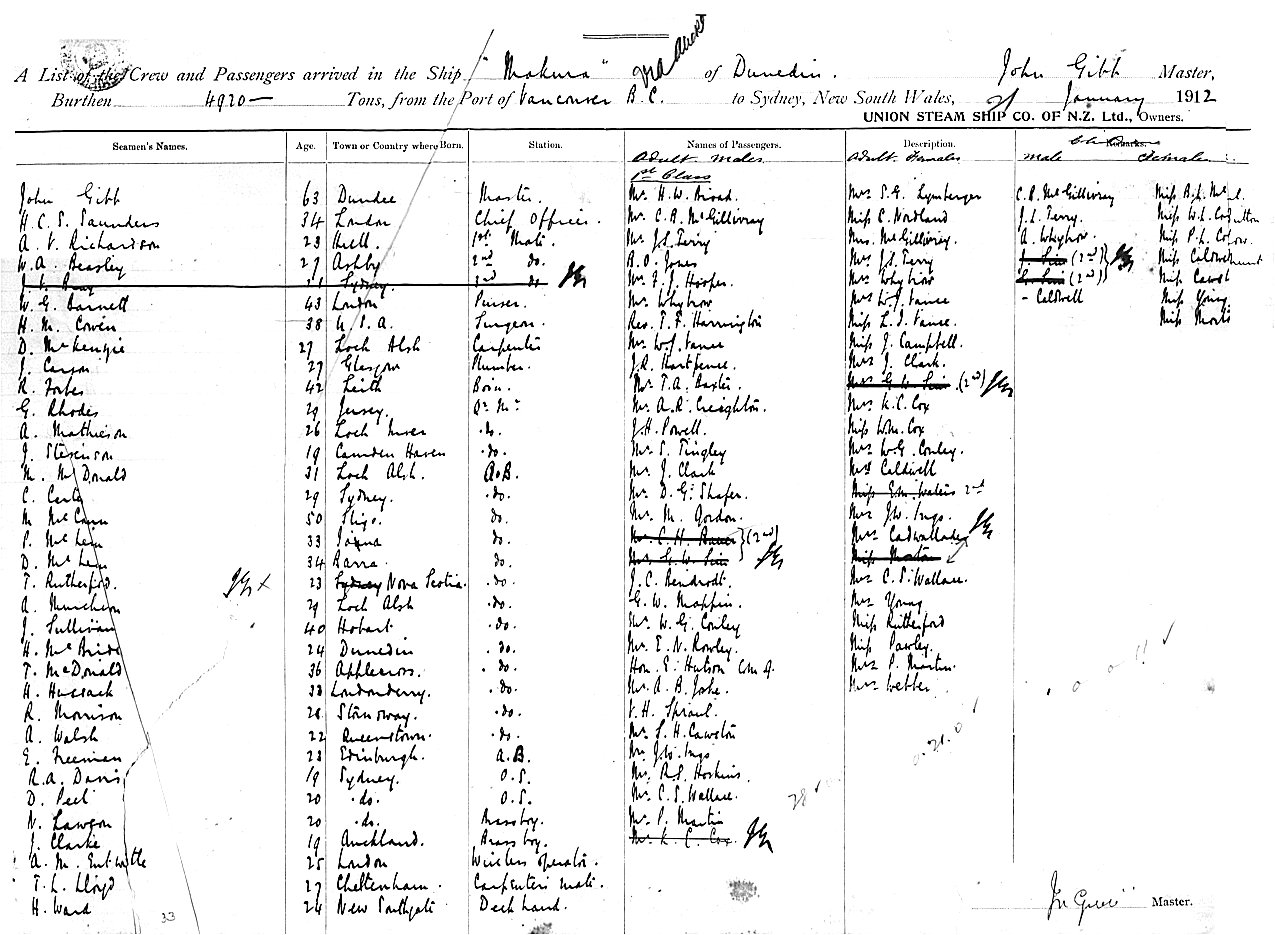 A List of the Crew and Passengers arrived in the Ship "Makura" via Auckd of Dunedin. John Gibb Master,
Burthen 4920— Tons, from the Port of Vancouver B.C. to Sydney, New South Wales, January 1912
UNION STEAM SHIP CO. OF N.Z. Ltd., Owners.
Seamen's Names. Age. Town or Country where Born. Station. Names of Passengers. Description. Remarks.
Adult Males Adult Females male Females
1st Class
John Gibb 63 Dundee Master. Mr H. W. Broad. C. R. McGillivray
H. C. S. Saunders 34 London Chief Officer. Mr C. R. McGillivray Miss C. Nordland J. L. Terry.
A. V. Richardson 23 Hull. 1st Mate. Mr J. L. Terry Mrs. McGillivray. A. Whybrow
W. A. Beasley 27 Ashby 2nd do. B. O. Jones Mrs J. L. Terry J. Sim (2nd)
Sydney. 3rd do Mr F. J. Hooper. Mrs Whybrow G. Sim (2nd)
W. G. Barnett 43 London Purser. Mr Whybrow Mrs W. J. Vance - Caldwell Miss Young.
H. M. Cowen 38 U.S.A. Surgeon. Rev. T. F. Harrington Miss L. I. Vance. Miss Morris
D. McKenzie 27 Loch Alsh Carpenter Mr W. J. Vance Miss J. Campbell.
J. Carson 27 Glasgow Plumber. J. R. Hartpence. Mrs J. Clark.
R. Forbes 42 Leith Bosn. Mr T. A. Baxter. Mrs G. W. Sim (2nd)
G. Rhodes 29 Jersey. Qr Mr Mr A. R. Creighton. Mrs K. C. Cox
A. Mathieson 26 Loch Inver do. J. H. Powell. Miss W. M. Cox
J. Stevenson 19 Camden Haven do. Mr S. Tingley Mrs W. G. Conley.
M. McDonald 31 Loch Alsh. A.B. Mr J. Clark Mrs Caldwell
C. Carter 29 Sydney. do. Mr D. G. Shafer. Miss E. M. Waters 2nd
M McCann 50 Sligo. do. Mr M. Gordon. Mrs J. W. Ings.
P. McLean 33 Iona do. Mr C. H. Bauer (2nd) Mrs Cadwallader
D. McLean 34 Barra. do. Mr G. W. Sim Miss Morton
T. Rutherford. 23 Sydney Nova Scotia. do. J. C. Reindrodt. Mrs C. S. Wallace.
A. Murchison 29 Loch Alsh do. G. W. Mappin. Mrs Young
J. Sullivan 40 Hobart do. Mr W. G. Conley Miss Rutherford
H. McBride 24 Dunedin do. Mr E. N. Rowley. Miss Pawley.
T. McDonald 36 Applecross. do. Hon. E. Hutson C.M.G. Mrs P. Martin.
H. Hussack 33 Londonderry. do. Mr A. B. Joske. Mrs Webber
R. Morrison 28 Stornoway. do. V. H. Sproul.
A. Walsh 22 Queenstown. do. Mr L. H. Cawston
E. Freeman 23 Edinburgh. A.B. Mr J. W. Ings
R. A. Davis 19 Sydney. O.S. Mr R. S. Hoskins.
D. Peel 20 do. O.S. Mr C. S. Wallace.
N. Lawson 20 do. Brassboy. Mr P. Martin
J. Clarke 19 Auckland. Brassboy. Mr K. C. Cox
A. M. Entwistle 25 London Wireless operator.
T. L. Lloyd 27 Cheltenham. Carpenters mate.
H. Ward 24 New Southgate Deck hand.
33 Master.